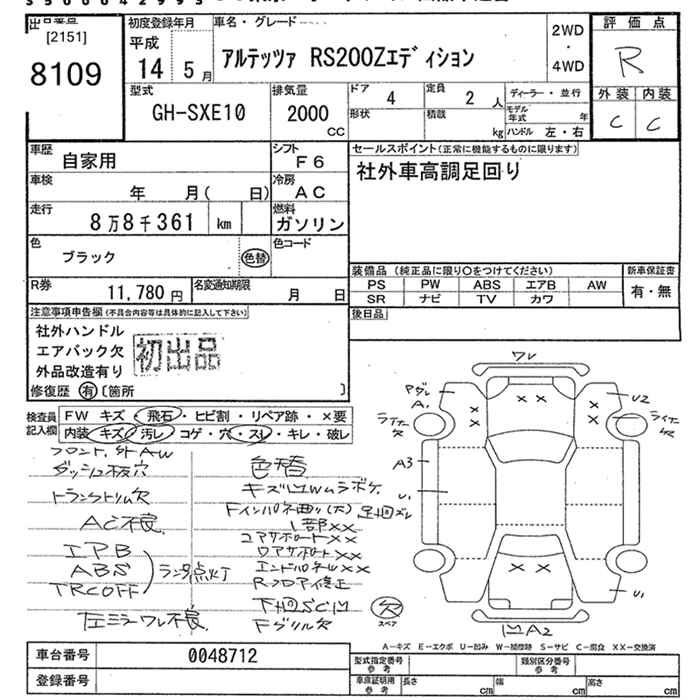 [2151]
8109
初度登録年月
平成
14 5月
車名・グレード
アルテッツァ RS200Zエディション
2WD
・
4WD
評価点
R
外装 内装
C C
型式
GH-SXE10
排気量
2000
CC
ドア
4
定員
2人
形状
積載
kg
ディーラー・並行
モデル年式 年
ハンドル 左・右
車歴
自家用
シフト
F6
車検
年 月( 日)
冷房
AC
走行
8万8千361 km
燃料
ガソリン
色
ブラック
色替
色コード
R券
11,780円
名変通知期限
月 日
セールスポイント(正常に機能するものに限ります)
社外車高調足回り
装備品 (純正品に限り○をつけてください)
PS PW ABS エアB AW
SR ナビ TV カワ
新車保証書
有・無
後日品
注意事項申告欄(不具合内容等は具体的に記入して下さい)
社外ハンドル
エアバック欠
外品改造有り
初出品
修復歴 有 〔箇所 〕
検査員記入欄
FW キズ・飛石・ヒビ割・リペア跡・×要
内装 キズ・汚レ・コゲ・穴・スレ・キレ・破レ
フロント、社外AW
ダッシュ板穴
トランクトリム欠
AC不良
エアB
ABS
TRC OFF
ランプ点灯
左ミラーワレ不良
色替
1部××
コアサポート××
エンドパネル××
Rフロア修正
Fグリル欠
欠
スペア
ワレ
A1
ライナー欠
A3
U1
U2
ライナー欠
U1
凹A2
A-キズ E-エクボ U-凹み W-補修跡 S-サビ C-腐食 XX-交換済
車台番号
0048712
登録番号
型式指定番号 参考
類別区分番号 参考
車庫証明用 参考
長さ cm
幅 cm
高さ cm